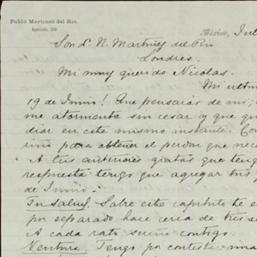 Pablo Martinez del Rio.
Apartado, 29
Mexico, Julio
Son Dn N. Martinez del Rio
Londres.
Mi muy querido Nicolas.
Mi ultim
19 de Junio! Que pensarás de mi,
me atormenta sin cesar y que qu
diar en este mismo instante. Co
uno para obtener el perdon que nece
A tus anteriores gratas que teng
respuesta tengo que agregar tus
de Junio.
Tu salud. Sobre este capitulo te e
por separado hace cerca de tres se
A cada rato sueño contigo.
Nentura. Tengo por contestar una